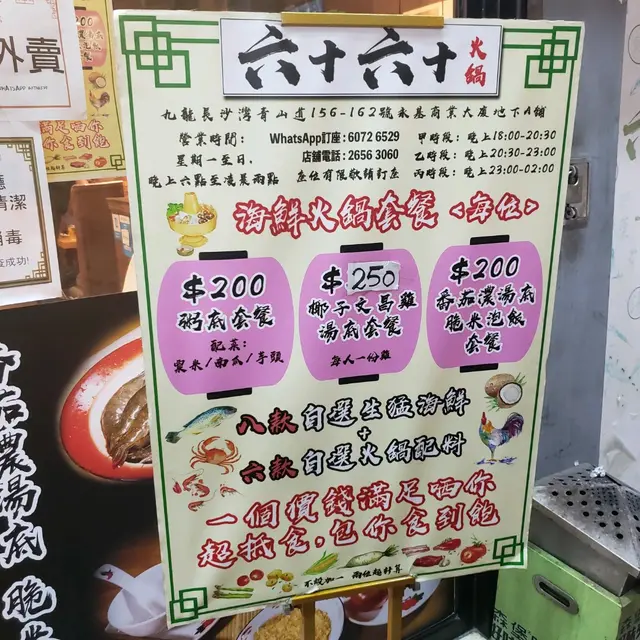 六十六十
火鍋
九龍長沙灣青山道156-162號永基商業大廈地下A鋪
營業時間：
星期一至日.
晚上六點至凌晨兩點
WhatsApp訂座：6072 6529
店舖電話：2656 3060
座位有限敬請訂座
甲時段：晚上18:00-20:30
乙時段：晚上20:30-23:00
丙時段：晚上23:00-02:00
海鮮火鍋套餐 <每位>
$200
粥底套餐
配菜：
粟米/南瓜/芋頭
$250
椰子文昌雞
湯底套餐
每人一份雞
$200
番茄濃湯底
脆米泡飯
套餐
八款自選生猛海鮮
+
六款自選火鍋配料
一個價錢滿足晒你
超抵食，包你食到飽
不設加一 兩位起計算
外賣
滿足晒你
食到飽
清潔
消毒
茄濃湯底 脆